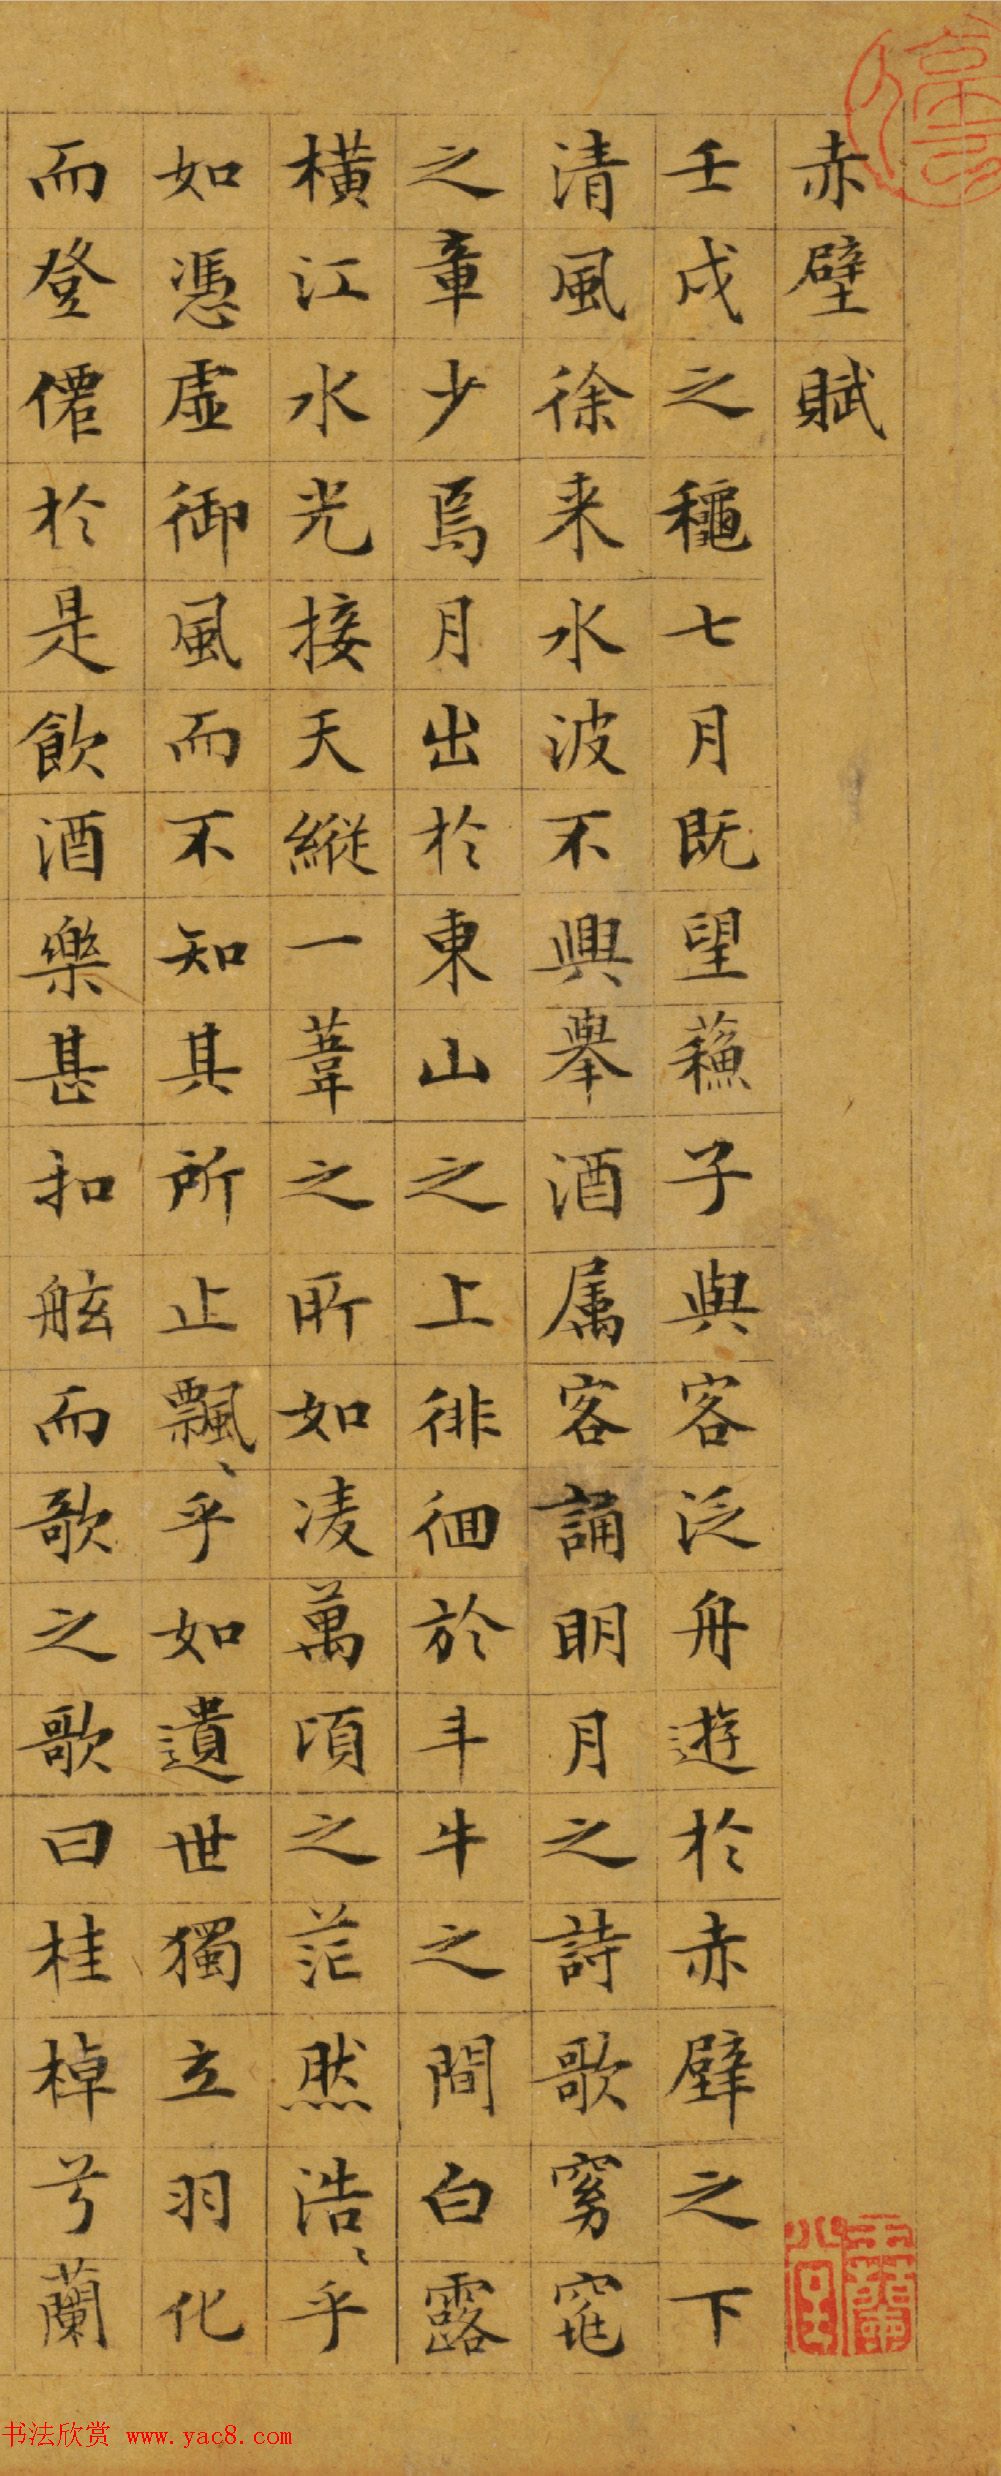 赤壁賦
壬戌之龝七月既望蘓子與客泛舟遊於赤壁之下
清風徐来水波不興舉酒属客誦明月之詩歌窈窕
之章少焉月出於東山之上徘徊於斗牛之間白露
橫江水光接天縦一葦之所如凌萬頃之茫然浩〻乎
如憑虚御風而不知其所止飄〻乎如遺世獨立羽化
而登僊於是飲酒樂甚扣舷而歌之歌曰桂棹兮蘭
书法欣赏 www.yac8.com